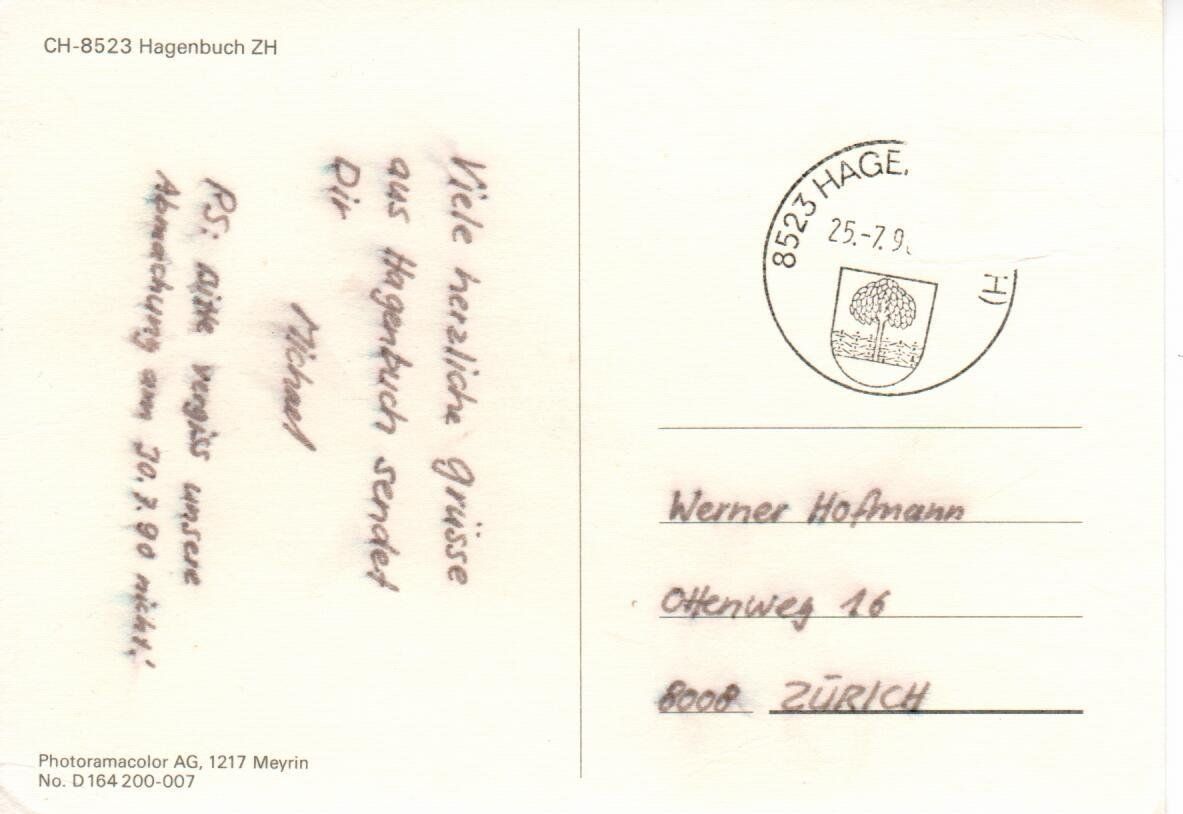 CH-8523 Hagenbuch ZH
Viele herzliche Grüsse
aus Hagenbuch sendet
Dir
Michael
PS: Bitte vergiss unsere
Abmachung am 30.7.90 nicht!
Photoramacolor AG, 1217 Meyrin
No. D 164 200-007
8523 HAGE
25.-7.9
H)
Werner Hofmann
Ottenweg 16
8008 ZÜRICH